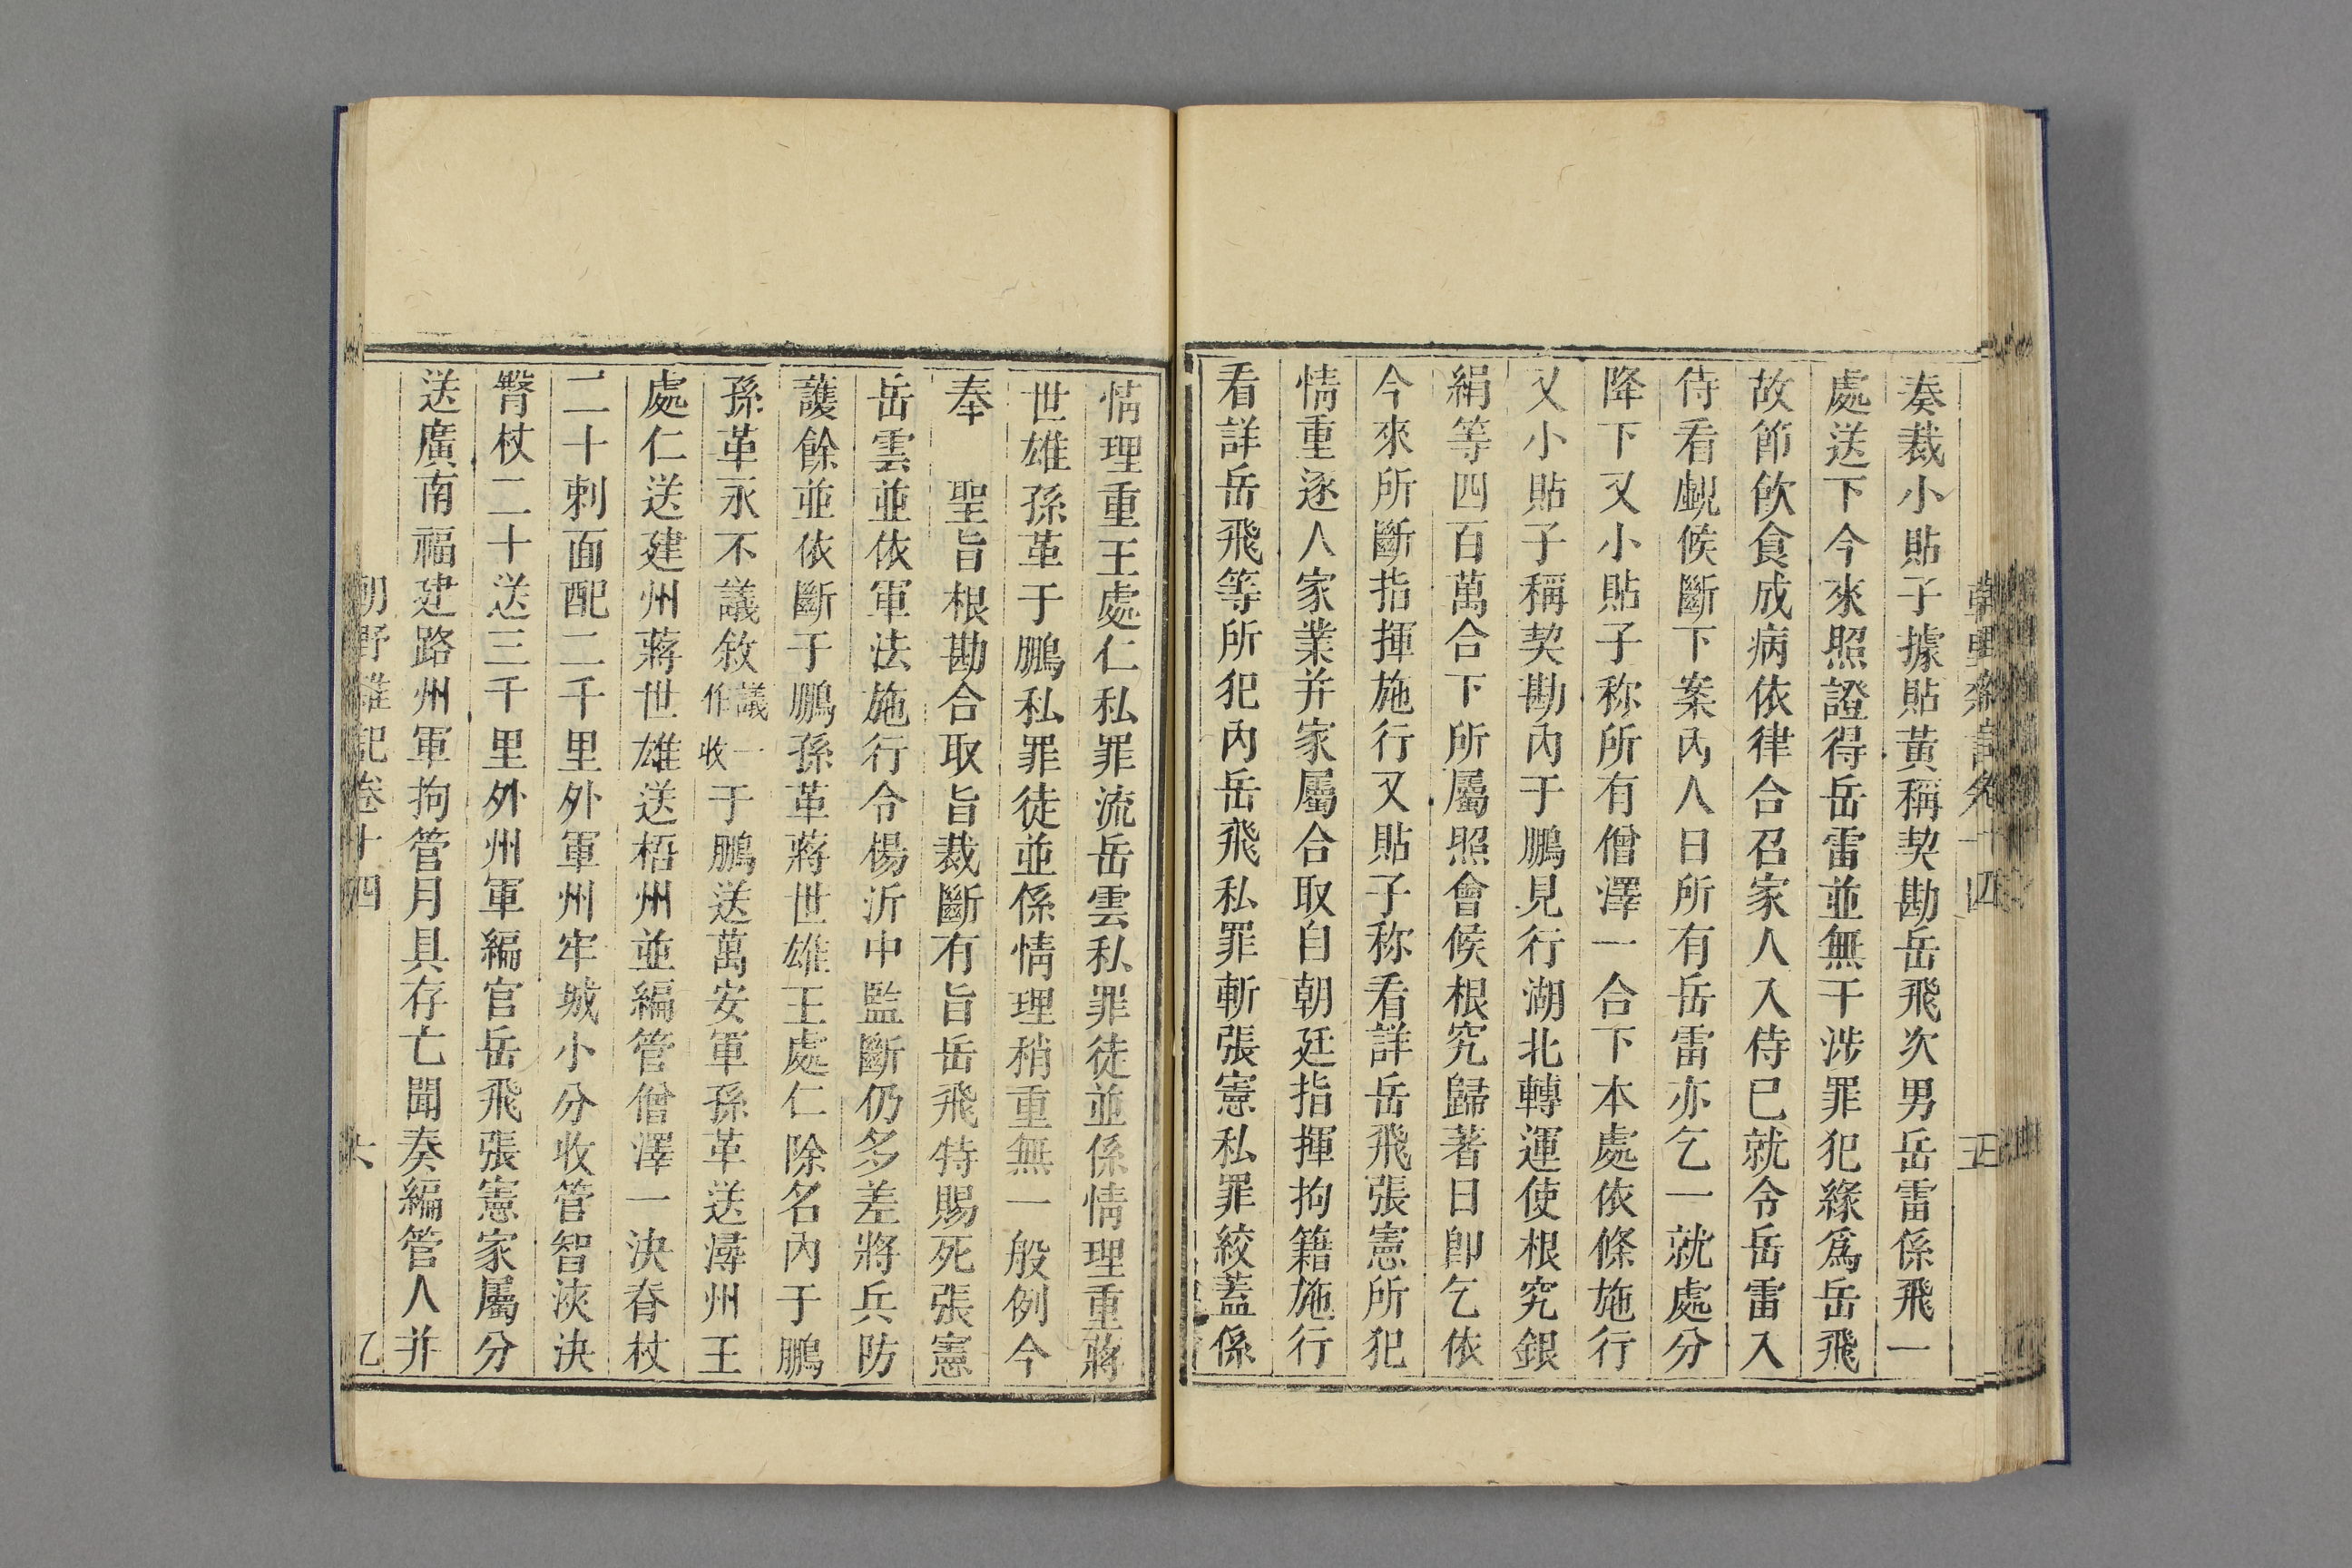 奏裁小貼子據貼黃稱契勘岳飛次男岳雷係飛一
處送下今來照證得岳雷並無干涉罪犯緣爲岳飛
故節飲食成病依律合召家人入侍已就令岳雷入
侍看覷候斷下案內人日所有岳雷亦乞一就處分
降下又小貼子称所有僧澤一合下本處依條施行
又小貼子稱契勘內于鵬見行湖北轉運使根究銀
絹等四百萬合下所屬照會候根究歸著日卽乞依
今來所斷指揮施行又貼子称看詳岳飛張憲所犯
情重逐人家業并家屬合取自朝廷指揮拘籍施行
看詳岳飛等所犯內岳飛私罪斬張憲私罪絞蓋係
情理重王處仁私罪流岳雲私罪徒並係情理重蔣
世雄孫革于鵬私罪徒並係情理稍重無一般例今
奉　聖旨根勘合取旨裁斷有旨岳飛特賜死張憲
岳雲並依軍法施行令楊沂中監斷仍多差將兵防
護餘並依斷于鵬孫革蔣世雄王處仁除名內于鵬
孫革永不議敘議一作收于鵬送萬安軍孫革送潯州王
處仁送建州蔣世雄送梧州並編管僧澤一決脊杖
二十刺面配二千里外軍州牢城小分收管智浹決
臀杖二十送三千里外州軍編官岳飛張憲家屬分
送廣南福建路州軍拘管月具存亡聞奏編管人并
朝野雜記卷十四　六　乙